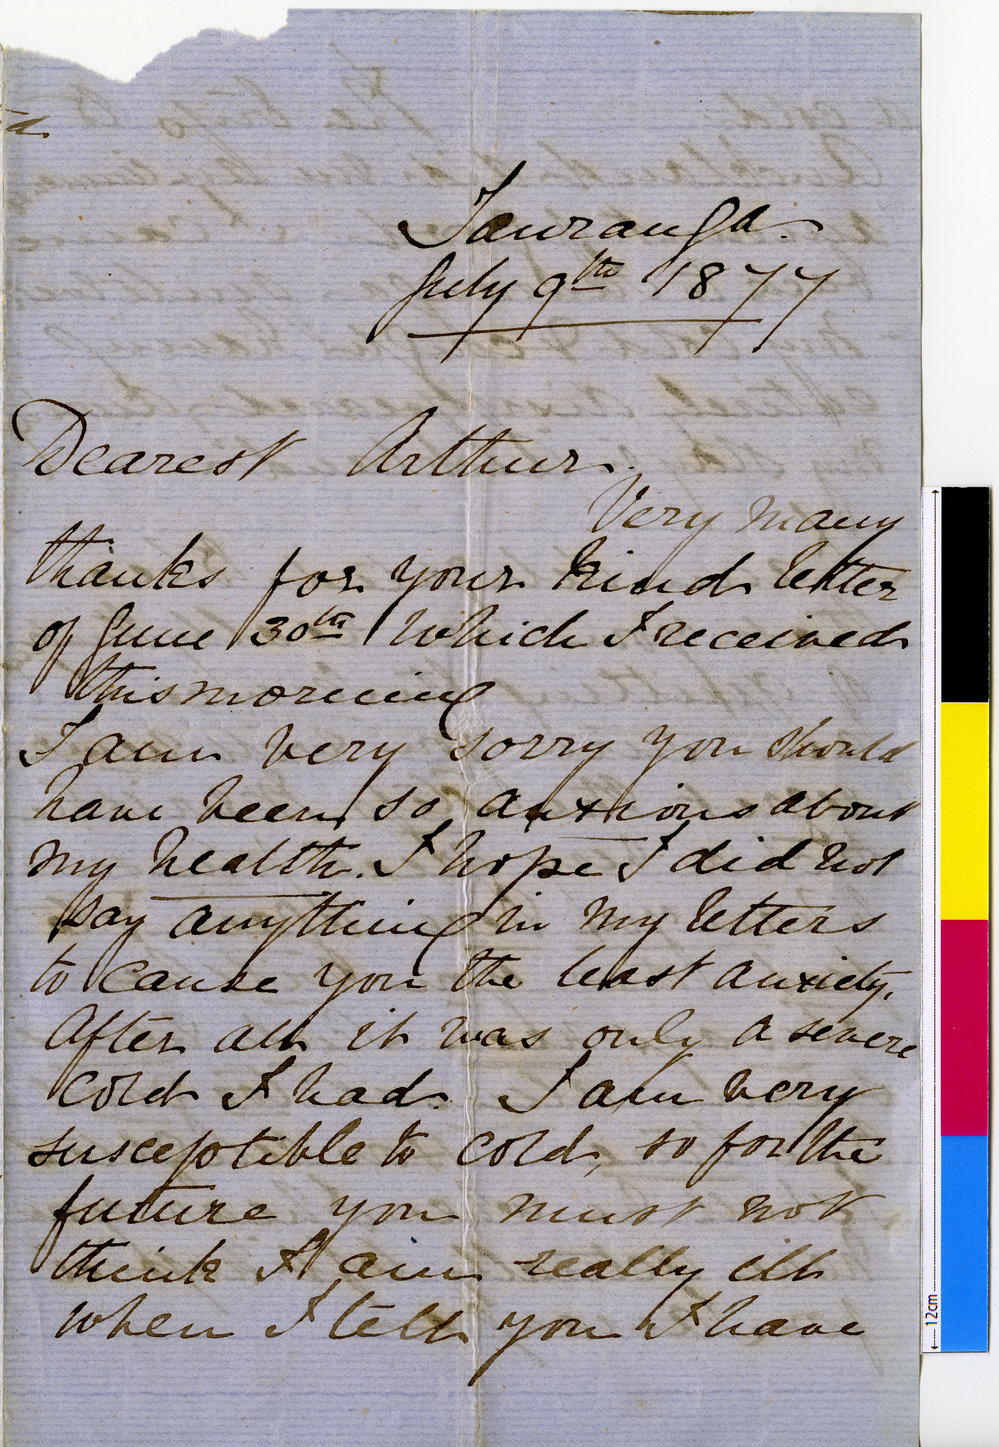 Tauranga.
July 9th 1877
Dearest Arthur.
Very many
thanks for your kind letter
of June 30th which I received
this morning
I am very sorry you should
have been so anxious about
my health. I hope I did not
say anything in my letters
to cause you the least anxiety.
After all it was only a severe
cold I had. I am very
susceptible to cold, so for the
future you must not
think I am really ill
when I tell you I have
12cm